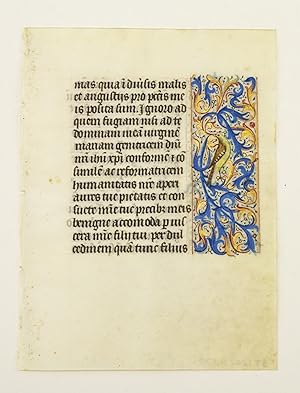 mas. quia i diusis malis
et angustijs pro pctis me
is posita sum. Ignoro ad
quem fugiam nisi ad te
dominam mea uirgine
mariam genitricem dni
nri ihu xpi conforme &
simile ac reformatricem
humanitatis nre aperi
aures tue pietatis et con
suete mie tue precib meis
benigne accomoda p uis
cera mie filij tui. per dul
cedinem qua tunc filius